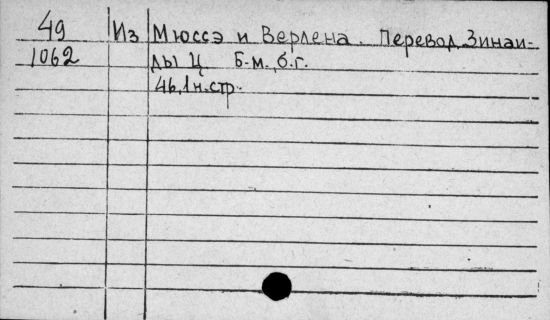 49 Из Мюссэ и Верлена. Перевод Зинаи-
1062 ды Ц Б.м., б.г.
46,1н.стр.